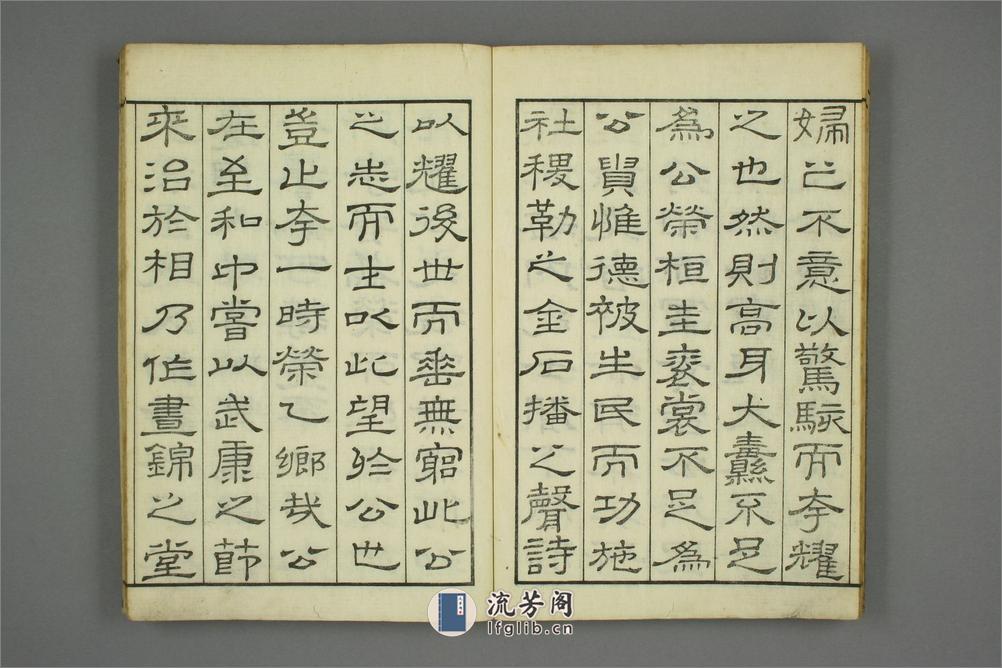 婦之不意以驚駭而夸耀
之也然則高牙大纛不足
為公榮桓圭袞裳不足為
公貴惟德被生民而功施
社稷勒之金石播之聲詩
以耀後世而垂無窮此公
之志而士以此望於公也
豈止夸一時榮乙鄉哉公
在至和中嘗以武康之節
來治於相乃作晝錦之堂
流芳阁
lfglib.cn